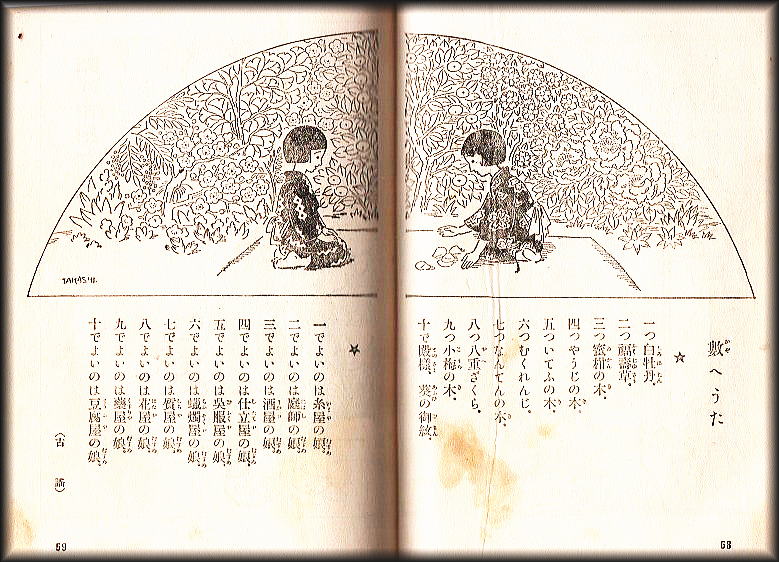 數へうた
☆
一つ白牡丹、
二つ福壽草、
三つ蜜柑の木、
四つやうじの木、
五ついてふの木、
六つむくれんじ、
七つなんてんの木、
八つ八重ざくら、
九つ小梅の木、
十で殿様、葵の御紋、
68
★
一でよいのは糸屋の娘、
二でよいのは庭師の娘、
三でよいのは酒屋の娘、
四でよいのは仕立屋の娘、
五でよいのは呉服屋の娘、
六でよいのは蝋燭屋の娘、
七でよいのは質屋の娘、
八でよいのは花屋の娘、
九でよいのは藥屋の娘、
十でよいのは豆腐屋の娘、
(古謡)
69
TAKASHI.